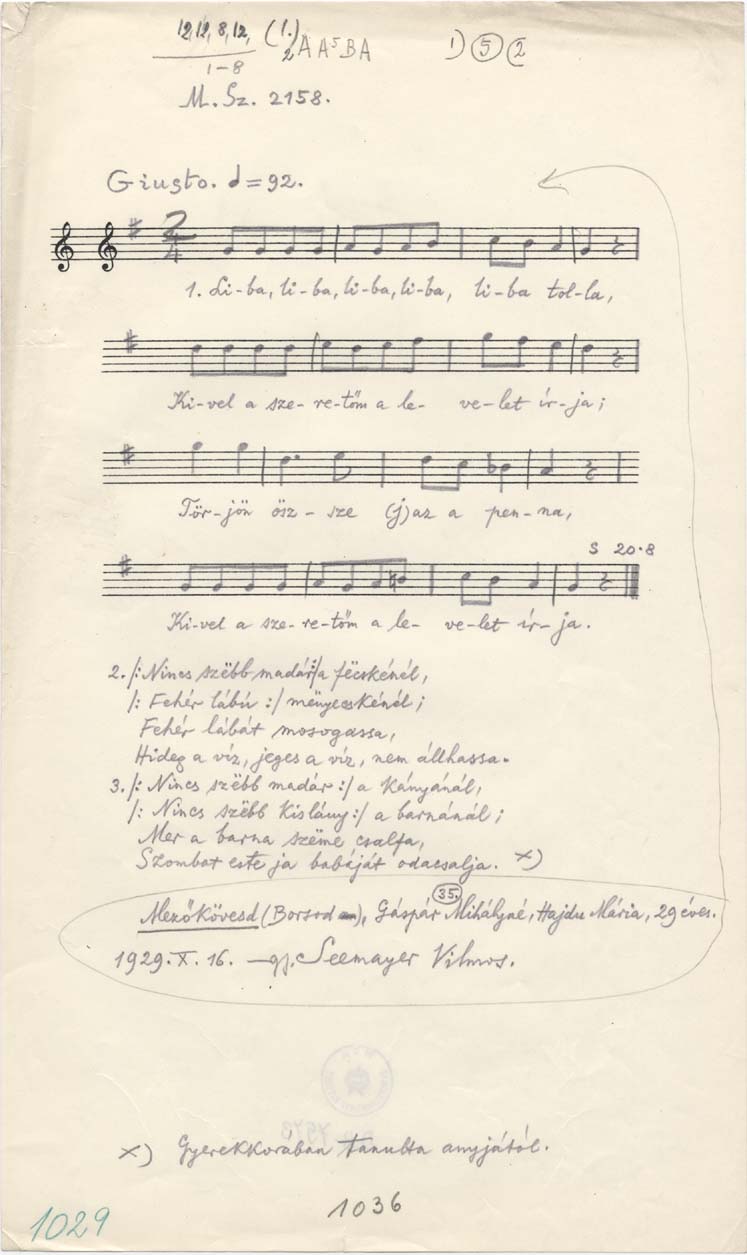 12,12,8,12, (1.) 2 A A⁵ B A 1) ⑤ 2
1-8
M. Sz. 2158.
Giusto. 𝅗𝅥=92.
2/4
1. Li-ba, li-ba, li-ba, li-ba, li-ba tol-la,
Ki-vel a sze-re-tőm a le- ve-let ír-ja;
Törjön ösz-sze (j)az a pen-na,
S 20.8
Ki-vel a sze-re-tőm a le- ve-let ír-ja.
2. /: Nincs szëbb madár :/ a fëcskénél,
/: Fehér lábú :/ mënyecskénél;
Fehér lábát mosogassa,
Hideg a víz, jeges a víz, nem állhassa.
3. /: Nincs szëbb madár :/ a kányánál,
/: Nincs szëbb kislány :/ a barnánál;
Mer a barna szëme csalfa,
Szombat este ja babáját odacsalja. x)
35.
Mezőkövesd (Borsod), Gáspár Mihályné, Hajdu Mária, 29 éves.
1929.X.16. —gj. Seemayer Vilmos.
x) Gyerekkorában tanulta anyjától.
1036
1029